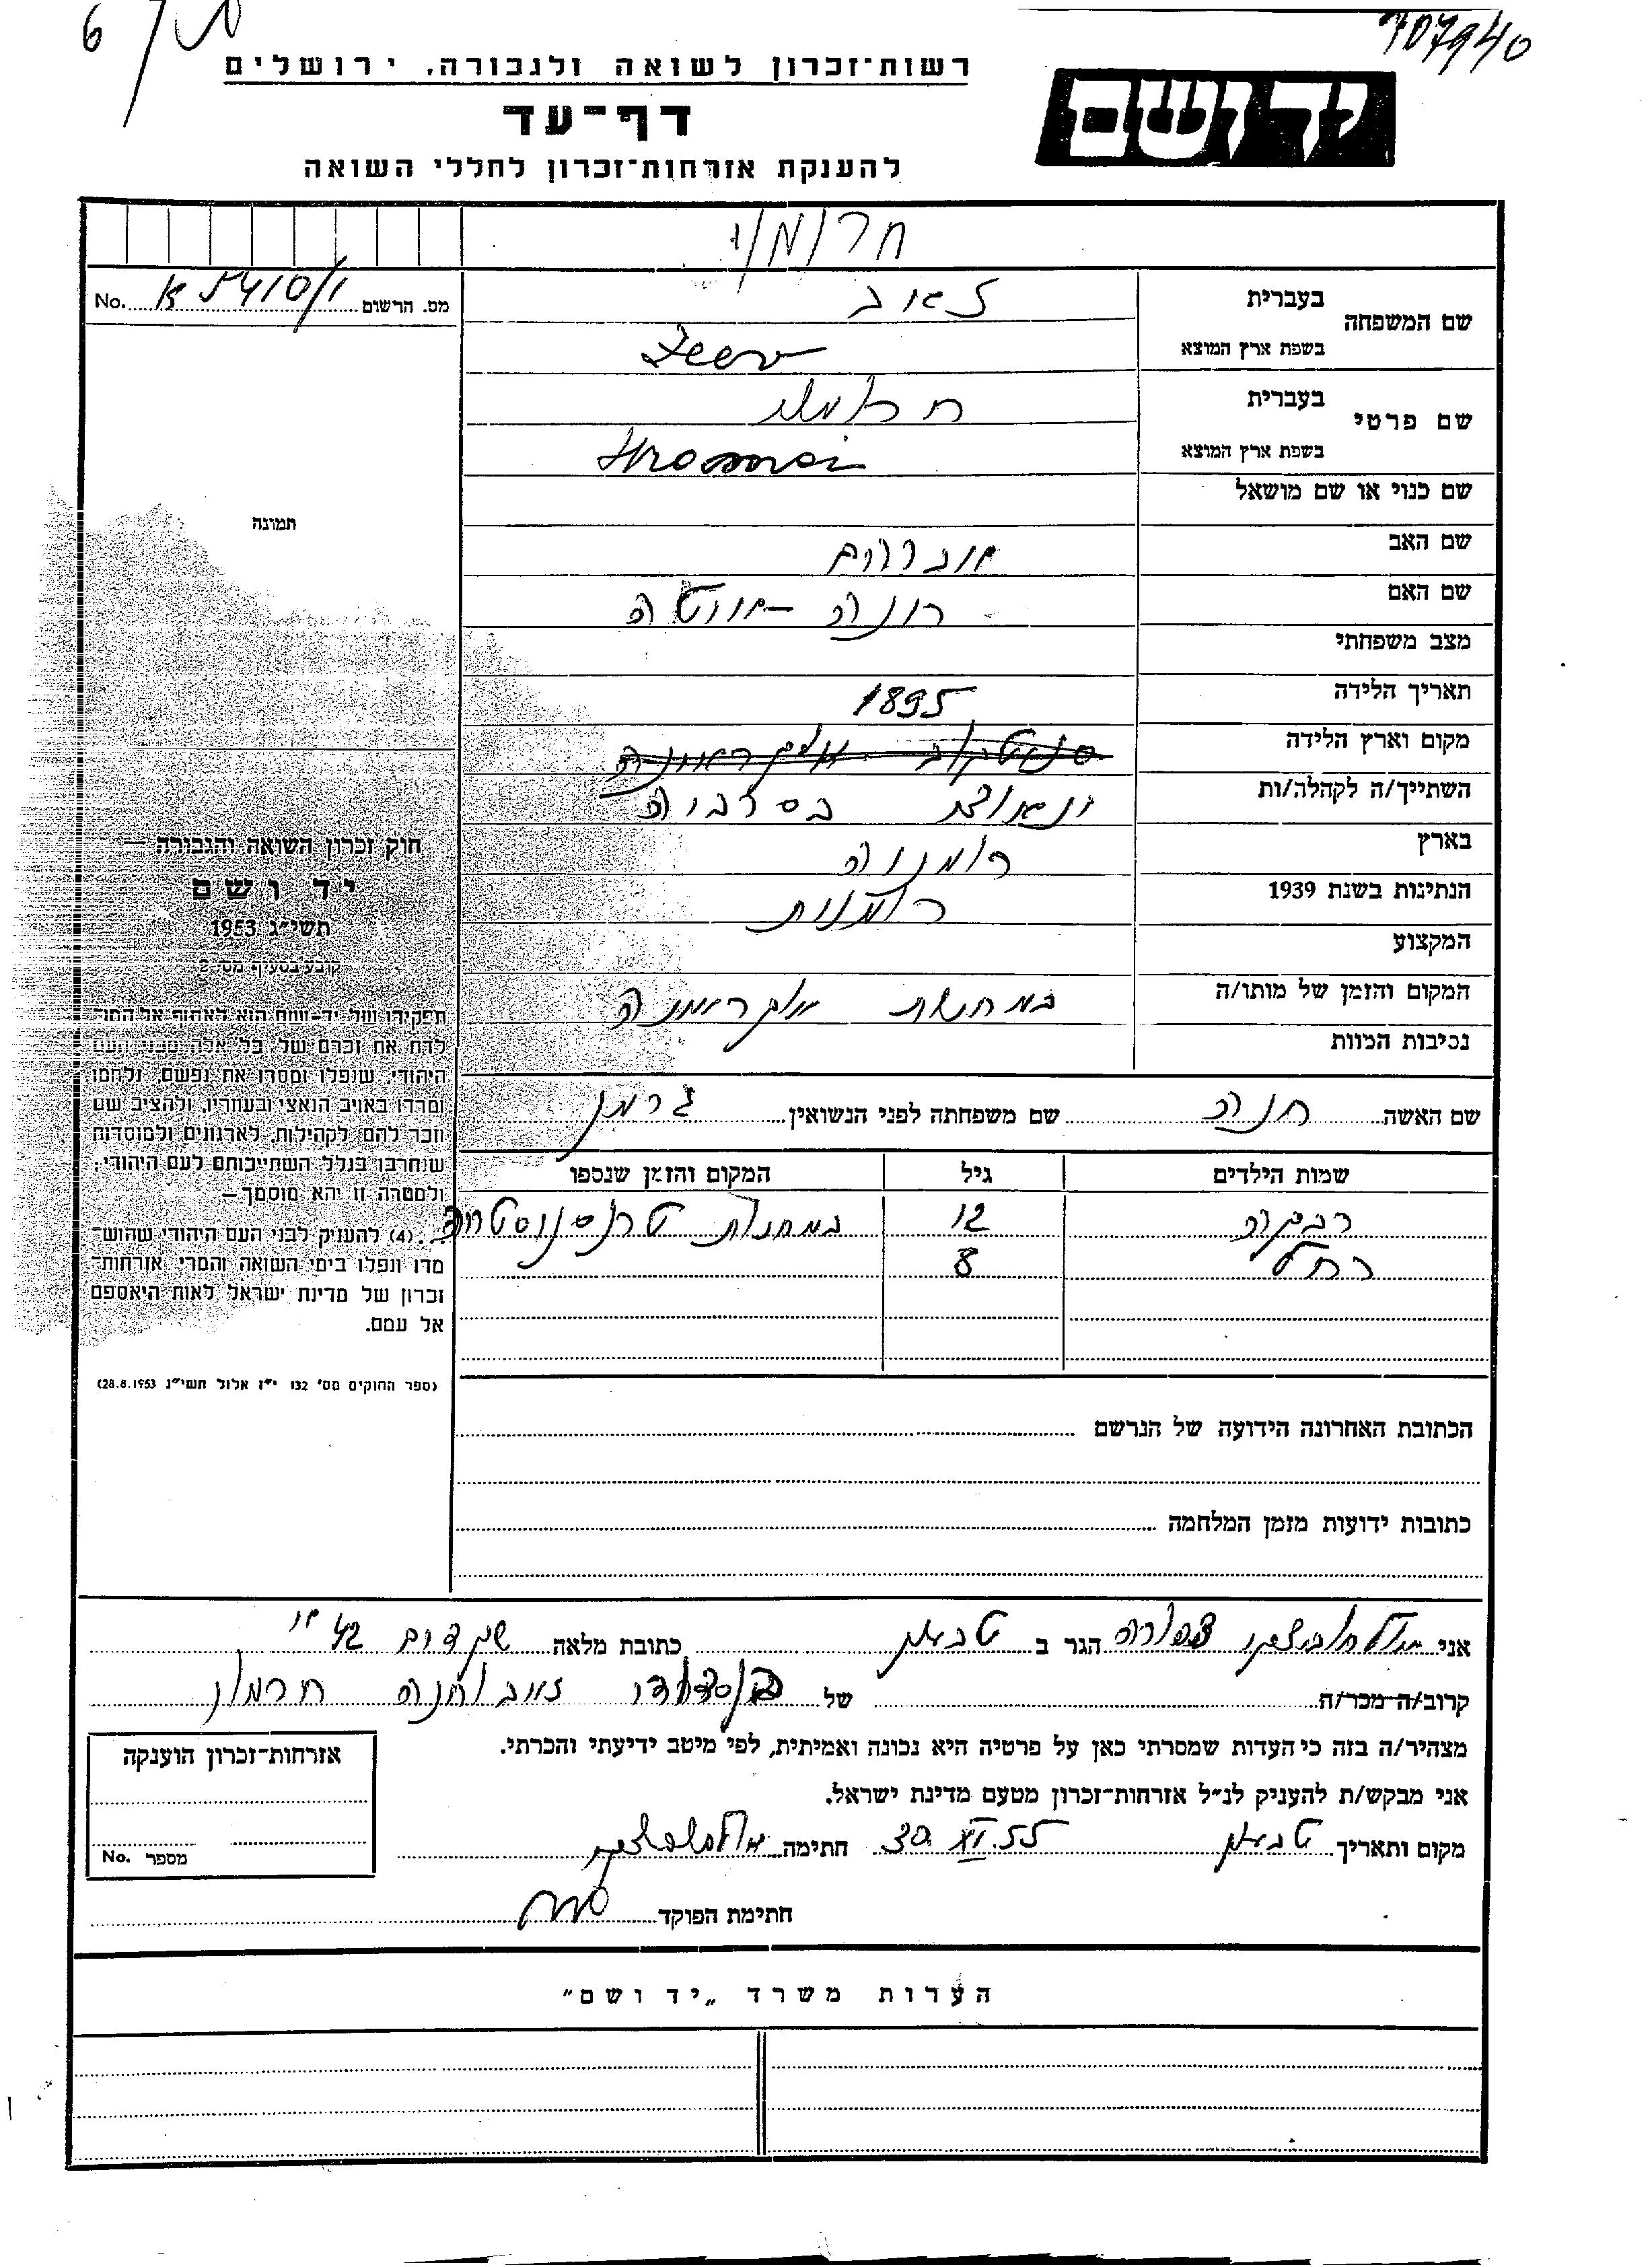 רשות־זכרון לשואה ולגבורה, ירושלים
דף־עד
להענקת אזרחות־זכרון לחללי השואה
יד ושם
מס. הרשום K 5410/1 No.
שם המשפחה בעברית זאב
בשפת ארץ המוצא Zeev
שם פרטי בעברית
בשפת ארץ המוצא Hromoi
שם כנוי או שם מושאל
שם האב אברהם
שם האם
מצב משפחתי
תאריך הלידה 1895
מקום וארץ הלידה
השתייך/ה לקהלה/ות בסרביה
בארץ רומניה
הנתינות בשנת 1939 רומנית
המקצוע
המקום והזמן של מותו/ה במחנות אוקראינה
נסיבות המוות
שם האשה חנה שם משפחתה לפני הנשואין גרמן
שמות הילדים גיל המקום והזמן שנספו
רבקה 12 במחנות טרנסניסטריה
רחל 8
הכתובת האחרונה הידועה של הנרשם
כתובות ידועות מזמן המלחמה
תמונה
חוק זכרון השואה והגבורה —
יד ושם
תשי״ג 1953
קובע בסעיף מס׳ 2
תפקידו של יד־ושם הוא לאסוף אל המו־
לדת את זכרם של כל אלה מבני העם
היהודי, שנפלו ומסרו את נפשם, נלחמו
ומרדו באויב הנאצי ובעוזריו, ולהציב שם
וזכר להם לקהילות, לארגונים ולמוסדות
שנחרבו בגלל השתייכותם לעם היהודי,
ולמטרה זו יהא מוסמך—
...(4) להעניק לבני העם היהודי שהוש־
מדו ונפלו בימי השואה והמרי אזרחות־
זכרון של מדינת ישראל לאות היאספם
אל עמם.
(ספר החוקים מס׳ 132 י״ז אלול תשי״ג 28.8.1953)
אני צפורה הגר ב טבעון כתובת מלאה שקדים 42
קרוב/ה מכר/ה של זאב וחנה
מצהיר/ה בזה כי העדות שמסרתי כאן על פרטיה היא נכונה ואמיתית, לפי מיטב ידיעתי והכרתי.
אני מבקש/ת להעניק לנ״ל אזרחות־זכרון מטעם מדינת ישראל.
מקום ותאריך טבעון 30.XI.55 חתימה
חתימת הפוקד
אזרחות־זכרון הוענקה
מספר No.
הערות משרד „יד ושם״